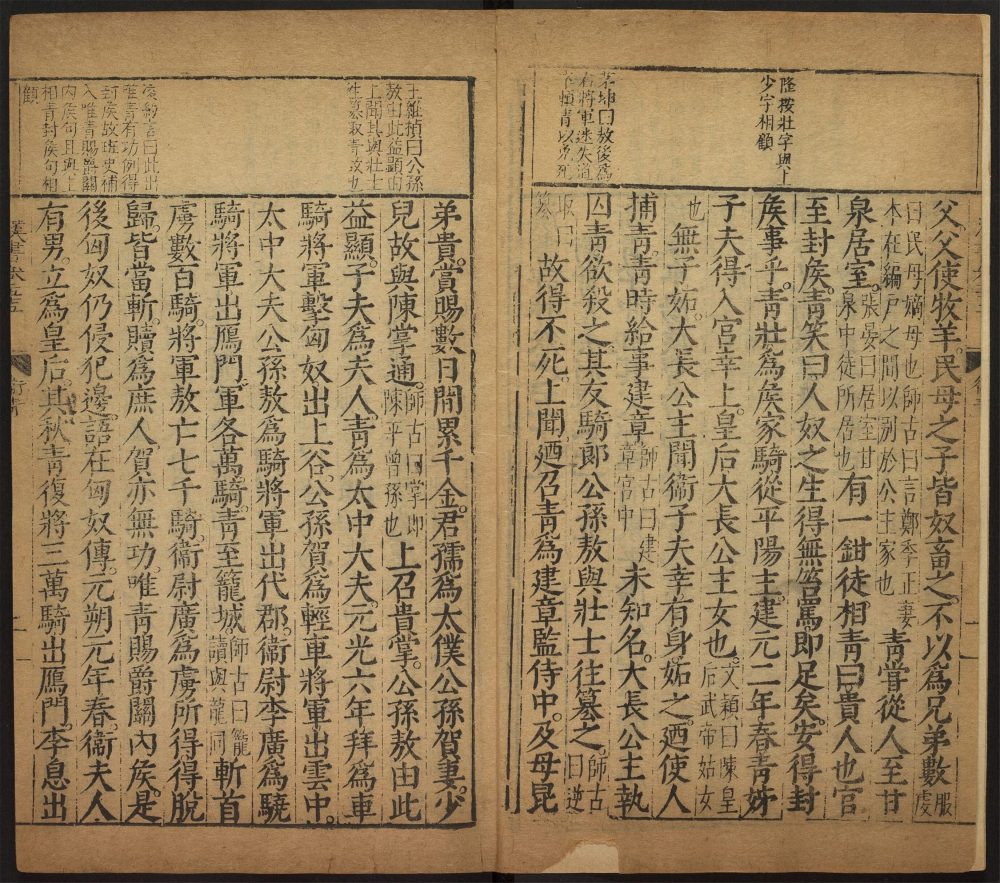 隆按壯字與上
少字相顧
茅坤曰敖後爲
右將軍迷失道
父父使牧羊民母之子皆奴畜之不以爲兄弟數服虔
曰民母嫡母也師古曰言鄭季正妻
本在編戶之間以別於公主家也青嘗從人至甘
泉居室張晏曰居室甘
泉中徒所居也有一鉗徒相青曰貴人也官
至封矦青笑曰人奴之生得無笞罵即足矣安得封
矦事乎青壯爲矦家騎從平陽主建元二年春青姊
子夫得入宮幸上皇后大長公主女也文穎曰陳皇
后武帝姑女
也無子妬大長公主聞衞子夫幸有身妬之廼使人
捕青青時給事建章師古曰建
章宮中未知名大長公主執
囚青欲殺之其友騎郎公孫敖與壯士往篡之師古
曰逆
取曰
篡故得不死上聞廼召青爲建章監侍中及母昆
王維楨曰公孫
敖由此益顯由
上聞其與壯士
往篡取青故也
凌約言曰此出
唯青有功例得
封矦故班史補
入唯青賜爵關
內矦句且與上
相青封矦句相
顧
弟貴賞賜數日閒累千金君孺爲太僕公孫賀妻少
兒故與陳掌通師古曰掌即
陳平曾孫也上召貴掌公孫敖由此
益顯子夫爲夫人青爲太中大夫元光六年拜爲車
騎將軍擊匈奴出上谷公孫賀爲輕車將軍出雲中
太中大夫公孫敖爲騎將軍出代郡衞尉李廣爲驍
騎將軍出鴈門軍各萬騎青至籠城師古曰籠
讀與龍同斬首
虜數百騎將軍敖亡七千騎衞尉廣爲虜所得得脫
歸皆當斬贖爲庶人賀亦無功唯青賜爵關內矦是
後匈奴仍侵犯邊語在匈奴傳元朔元年春衞夫人
有男立爲皇后其秋青復將三萬騎出鴈門李息出